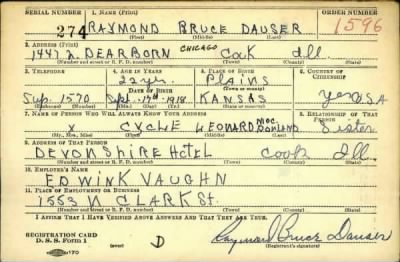 SERIAL NUMBER 1. NAME (Print) ORDER NUMBER
274 RAYMOND BRUCE DAUSER 1596
(First) (Middle) (Last)
2. ADDRESS (Print)
1447 N. DEARBORN CHICAGO Cook Ill.
(Number and street or R. F. D. number) (Town) (County) (State)
3. TELEPHONE 4. AGE IN YEARS 5. PLACE OF BIRTH 6. COUNTRY OF CITIZENSHIP
22 yr. Plains
DATE OF BIRTH (Town or county)
Sup. 1570 Sept. 17th 1918 KANSAS USA
(Exchange) (Number) (Mo.) (Day) (Yr.) (State or country)
7. NAME OF PERSON WHO WILL ALWAYS KNOW YOUR ADDRESS 8. RELATIONSHIP OF THAT PERSON
LEONARD Sister
(Mr., Mrs., Miss) (First) (Middle) (Last)
9. ADDRESS OF THAT PERSON
DEVONSHIRE HOTEL Cook Ill.
(Number and street or R. F. D. number) (Town) (County) (State)
10. EMPLOYER'S NAME
EDWIN K VAUGHN
11. PLACE OF EMPLOYMENT OR BUSINESS
1553 N CLARK St.
(Number and street or R. F. D. number) (Town) (County) (State)
I AFFIRM THAT I HAVE VERIFIED ABOVE ANSWERS AND THAT THEY ARE TRUE.
REGISTRATION CARD
D. S. S. Form 1 D Raymond Bruce Dauser
(Registrant's signature)